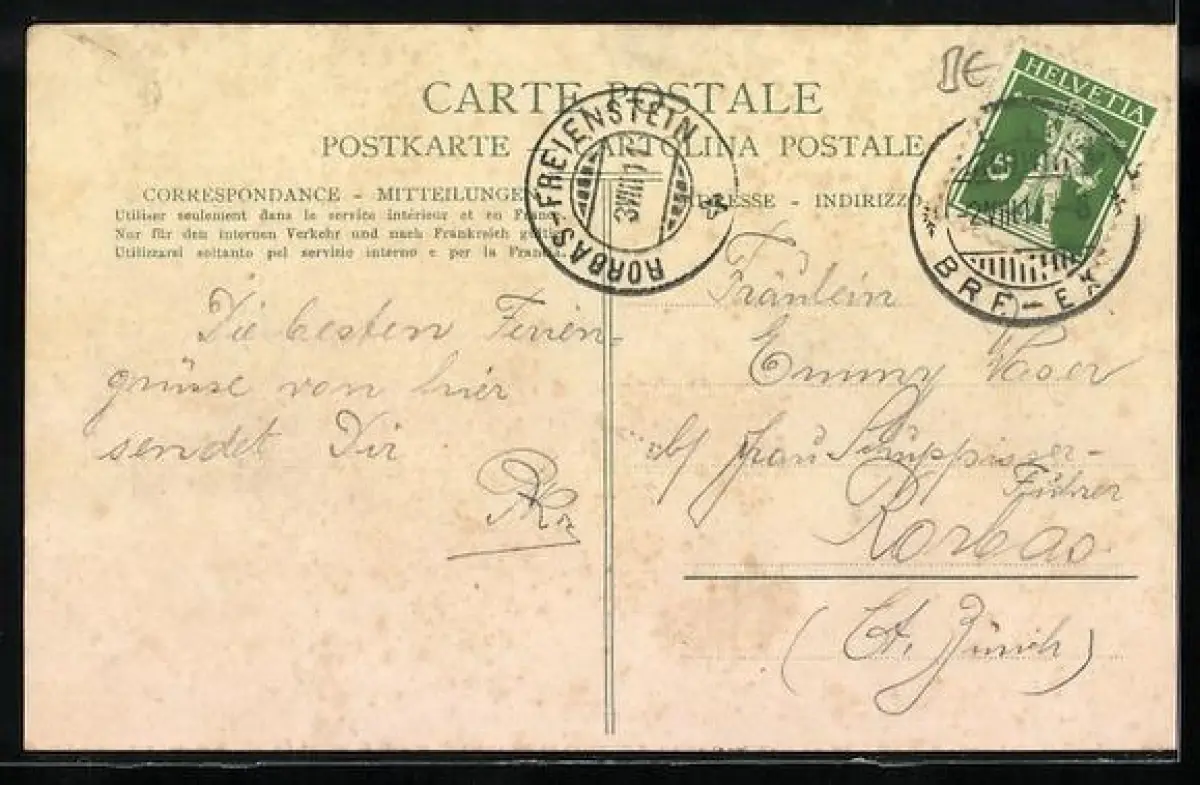 CARTE POSTALE
POSTKARTE - CARTOLINA POSTALE
CORRESPONDANCE - MITTEILUNGEN
ADRESSE - INDIRIZZO
Utiliser seulement dans le service intérieur et en France
Nur für den internen Verkehr und nach Frankreich gültig
Utilizzarsi soltanto pel servizio interno e per la Francia
RORBAS-FREIENSTEIN
3 VIII 12
HELVETIA
5
-2 VIII 1
BRE-EX
Die besten Ferien-
grüsse von hier
sendet Dir
Fräulein
Emmy Waser
Frau Schüppisser-
Führer
Rorbas
(Ct. Zürich)